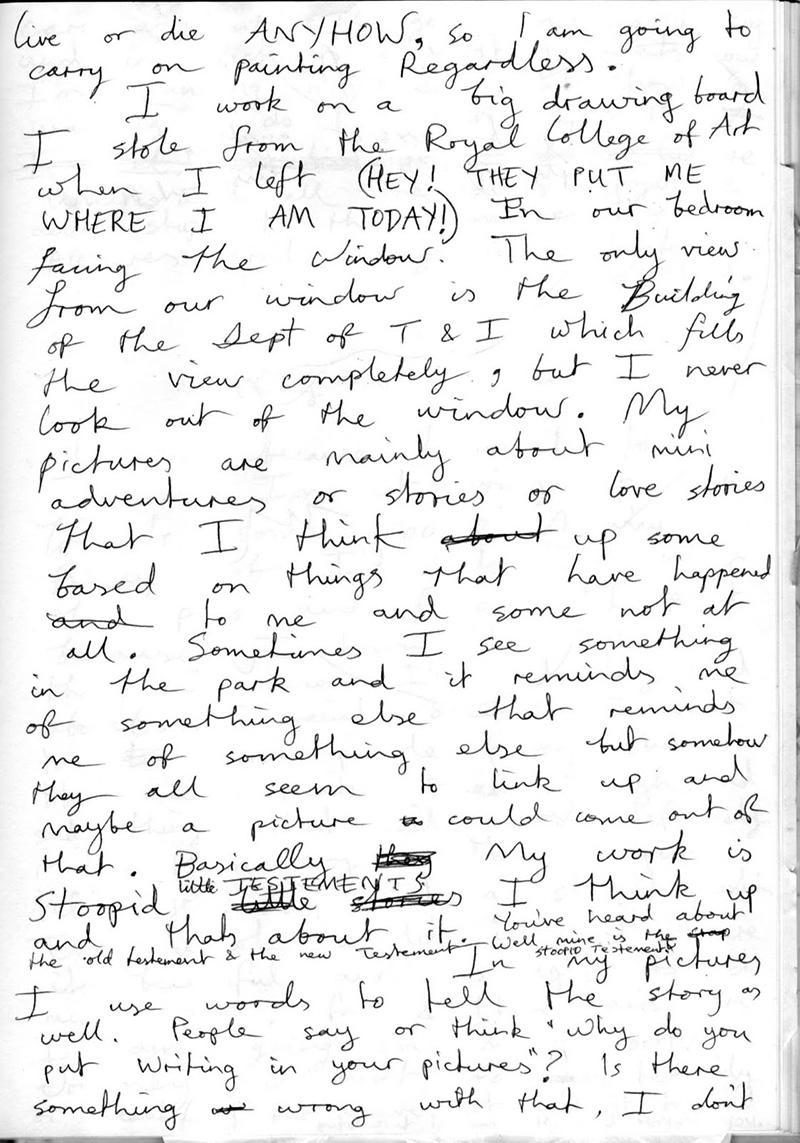 live or die ANYHOW, so I am going to
carry on painting Regardless.
I work on a big drawing board
I stole from the Royal College of Art
when I left (HEY! THEY PUT ME
WHERE I AM TODAY!) In our bedroom
facing the window. The only view
from our window is the Building
of the Dept of T & I which fills
the view completely, but I never
look out of the window. My
pictures are mainly about mini
adventures or stories or love stories
that I think about up some
based on things that have happened
and to me and some not at
all. Sometimes I see something
in the park and it reminds me
of something else that reminds
me of something else but somehow
they all seem to link up and
maybe a picture could come out of
that. Basically they My work is
little TESTEMENTS
Stoopid little stories I think up
and thats about it. You've heard about
the old testement & the new Testement Well mine is the stop
stoopid Testement
In my pictures
I use words to tell the story as
well. People say or think "Why do you
put writing in your pictures"? Is there
something wrong with that, I don't